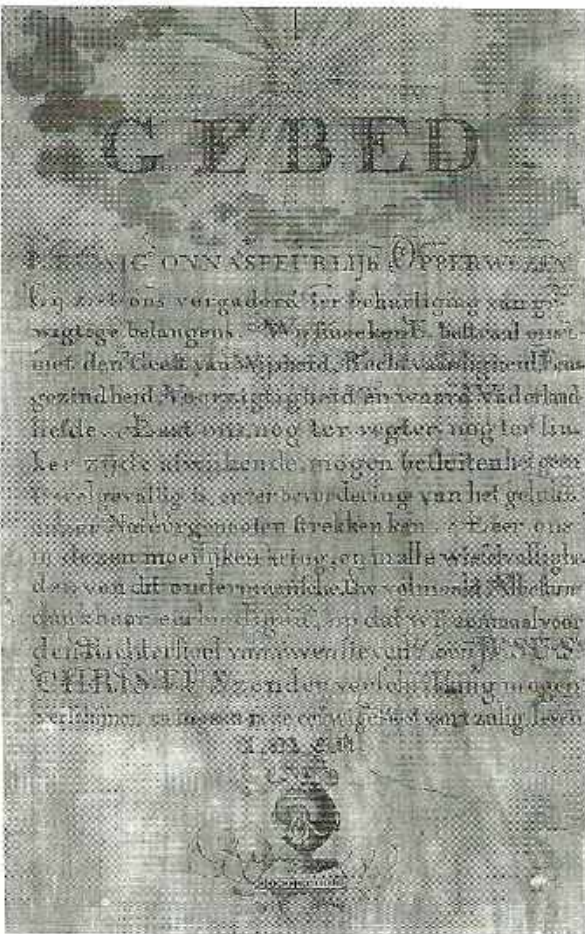 GEBED
ONNASPEURLIJK OPPERWEZEN
Gij ziet ons vergaderd ter behartiging van ge-
wigtige belangens. Wij
met den Geest van Wijsheid, Rechtvaardigheid, Een-
gezindheid, Voorzigtigheid en waare Vaderland
liefde. Laat ons, nog ter regter nog ter lin-
ker zijde afwijkende, mogen besluiten het geen
gevallig is, en ter bevordering van het geluk
Natuurgenooten strekken kan. Leer ons
in deezen moeilijken kring, en in alle wisselvallighe-
den van dit ondermaansche, Uw volmaakt Albestuur
dankbaar eerbiedigen, op dat wij eenmaal voor
den Richterstoel van Uwen lieven Zoon JESUS
CHRISTUS zonder verschrikking mogen
verschijnen, en ingaan in de eeuwigheid van't zalig leven